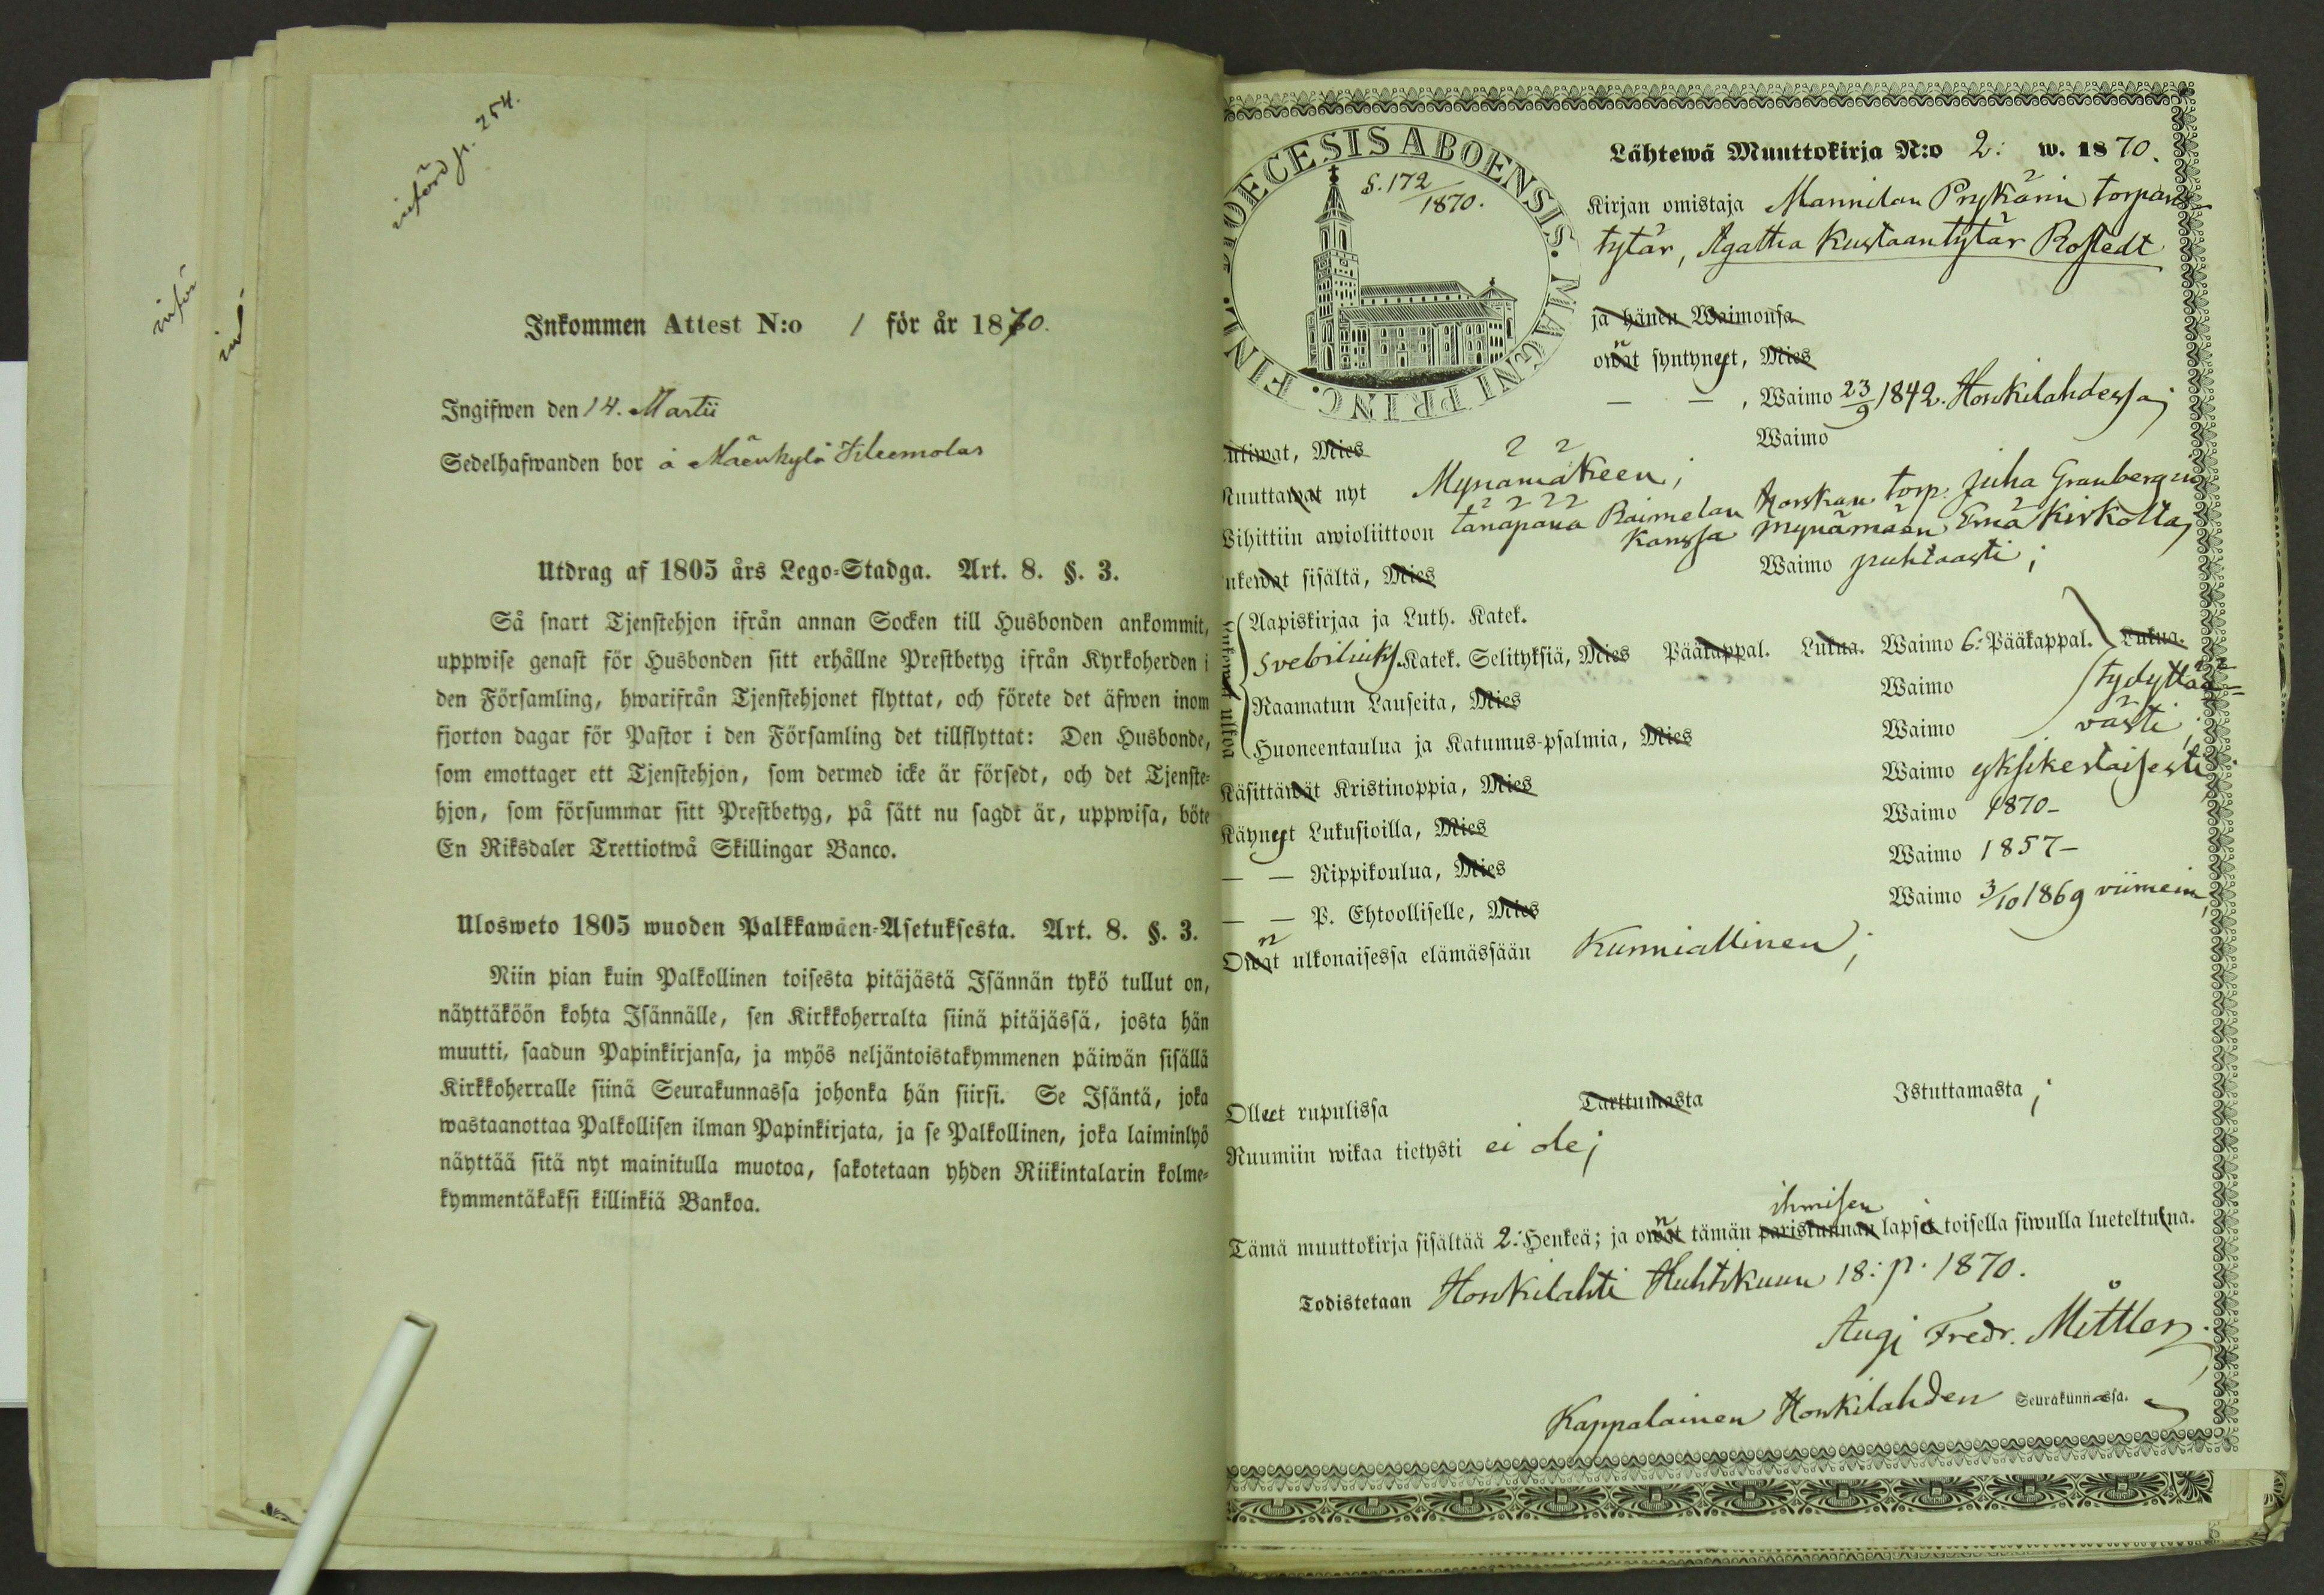 införd p. 254.
Inkommen Attest N:o 1 för år 1870.
Ingifwen den 14. Martii
Sedelhafwanden bor å Mäenkylä Kleemolas
Utdrag af 1805 års Lego-Stadga. Art. 8. §. 3.
Så snart Tjenstehjon ifrån annan Socken till Husbonden ankommit,
uppwise genast för Husbonden sitt erhållne Prestbetyg ifrån Kyrkoherden i
den Församling, hwarifrån Tjenstehjonet flyttat, och förete det äfwen inom
fjorton dagar för Pastor i den Församling det tillflyttat: Den Husbonde,
som emottager ett Tjenstehjon, som dermed icke är försedt, och det Tjenste-
hjon, som försummar sitt Prestbetyg, på sätt nu sagdt är, uppwisa, böte
En Riksdaler Trettiotwå Skillingar Banco.
Ulosweto 1805 wuoden Palkkawäen-Asetuksesta. Art. 8. §. 3.
Niin pian kuin Palkollinen toisesta pitäjästä Isännän tykö tullut on,
näyttäköön kohta Isännälle, sen Kirkkoherralta siinä pitäjässä, josta hän
muutti, saadun Papinkirjansa, ja myös neljäntoistakymmenen päiwän sisällä
Kirkkoherralle siinä Seurakunnassa johonka hän siirsi. Se Isäntä, joka
wastaanottaa Palkollisen ilman Papinkirjata, ja se Palkollinen, joka laiminlyö
näyttää sitä nyt mainitulla muotoa, sakotetaan yhden Riikintalarin kolme-
kymmentäkaksi killinkiä Bankoa.
DIOECESIS ABOENSIS. MAGNI PRINC. FINL.
S. 172
1870.
Lähtewä Muuttokirja N:o 2: w. 1870.
Kirjan omistaja Mannilan Prykärin torpan
tytär, Agatha Kustaantytär Rostedt
ja hänen Waimonsa
owat syntynyt, Mies
— — , Waimo 23/9 1842. Honkilahdessa;
utiwat, Mies Waimo
Muuttawat nyt Mynämäkeen;
Wihittiin awioliittoon tänäpänä Raimelan Horskan torp. Juha Granbergin
kanssa Mynämäen Emäkirkolla;
ukewat sisältä, Mies Waimo puhtaasti;
Aapiskirjaa ja Luth. Katek.
Svebiliuks. Katek. Selityksiä, Mies Pääkappal. Lukua. Waimo 6: Pääkappal. Lukua.
Raamatun Lauseita, Mies Waimo tydyttää=
Huoneentaulua ja Katumus-psalmia, Mies Waimo västi;
Käsittäwät Kristinoppia, Mies Waimo yksikertaisesti
Käynyt Lukusioilla, Mies Waimo 1870-
— — Rippikoulua, Mies Waimo 1857-
— — P. Ehtoolliselle, Mies Waimo 3/10 1869 viimein;
Owat ulkonaisessa elämässään Kunniallinen;
Olleet rupulissa Tarttumasta Istuttamasta;
Ruumiin wikaa tietysti ei ole;
ihmisen
Tämä muuttokirja sisältää 2: Henkeä; ja owat tämän pariskunnan lapsia toisella siwulla lueteltuna.
Todistetaan Honkilahti Huhtikuun 18: p. 1870.
Aug: Fredr. Mittler.
Kappalainen Honkilahden Seurakunnassa.